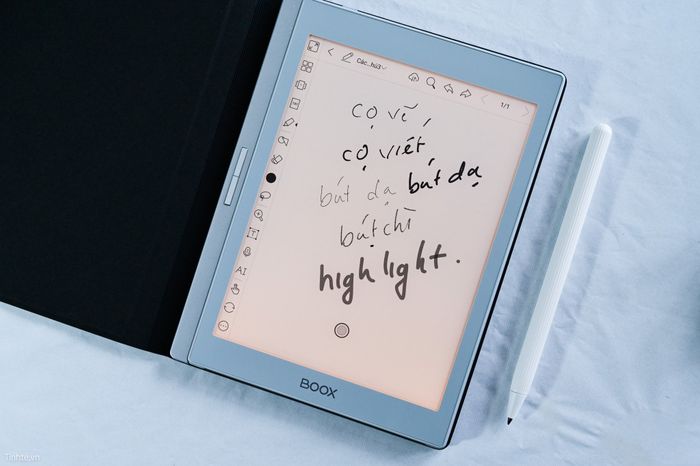 1/1
cọ vẽ,
cọ viết,
bút dạ bút dạ
bút chì
highlight.
T
AI
BOOX
Tinhte.vn